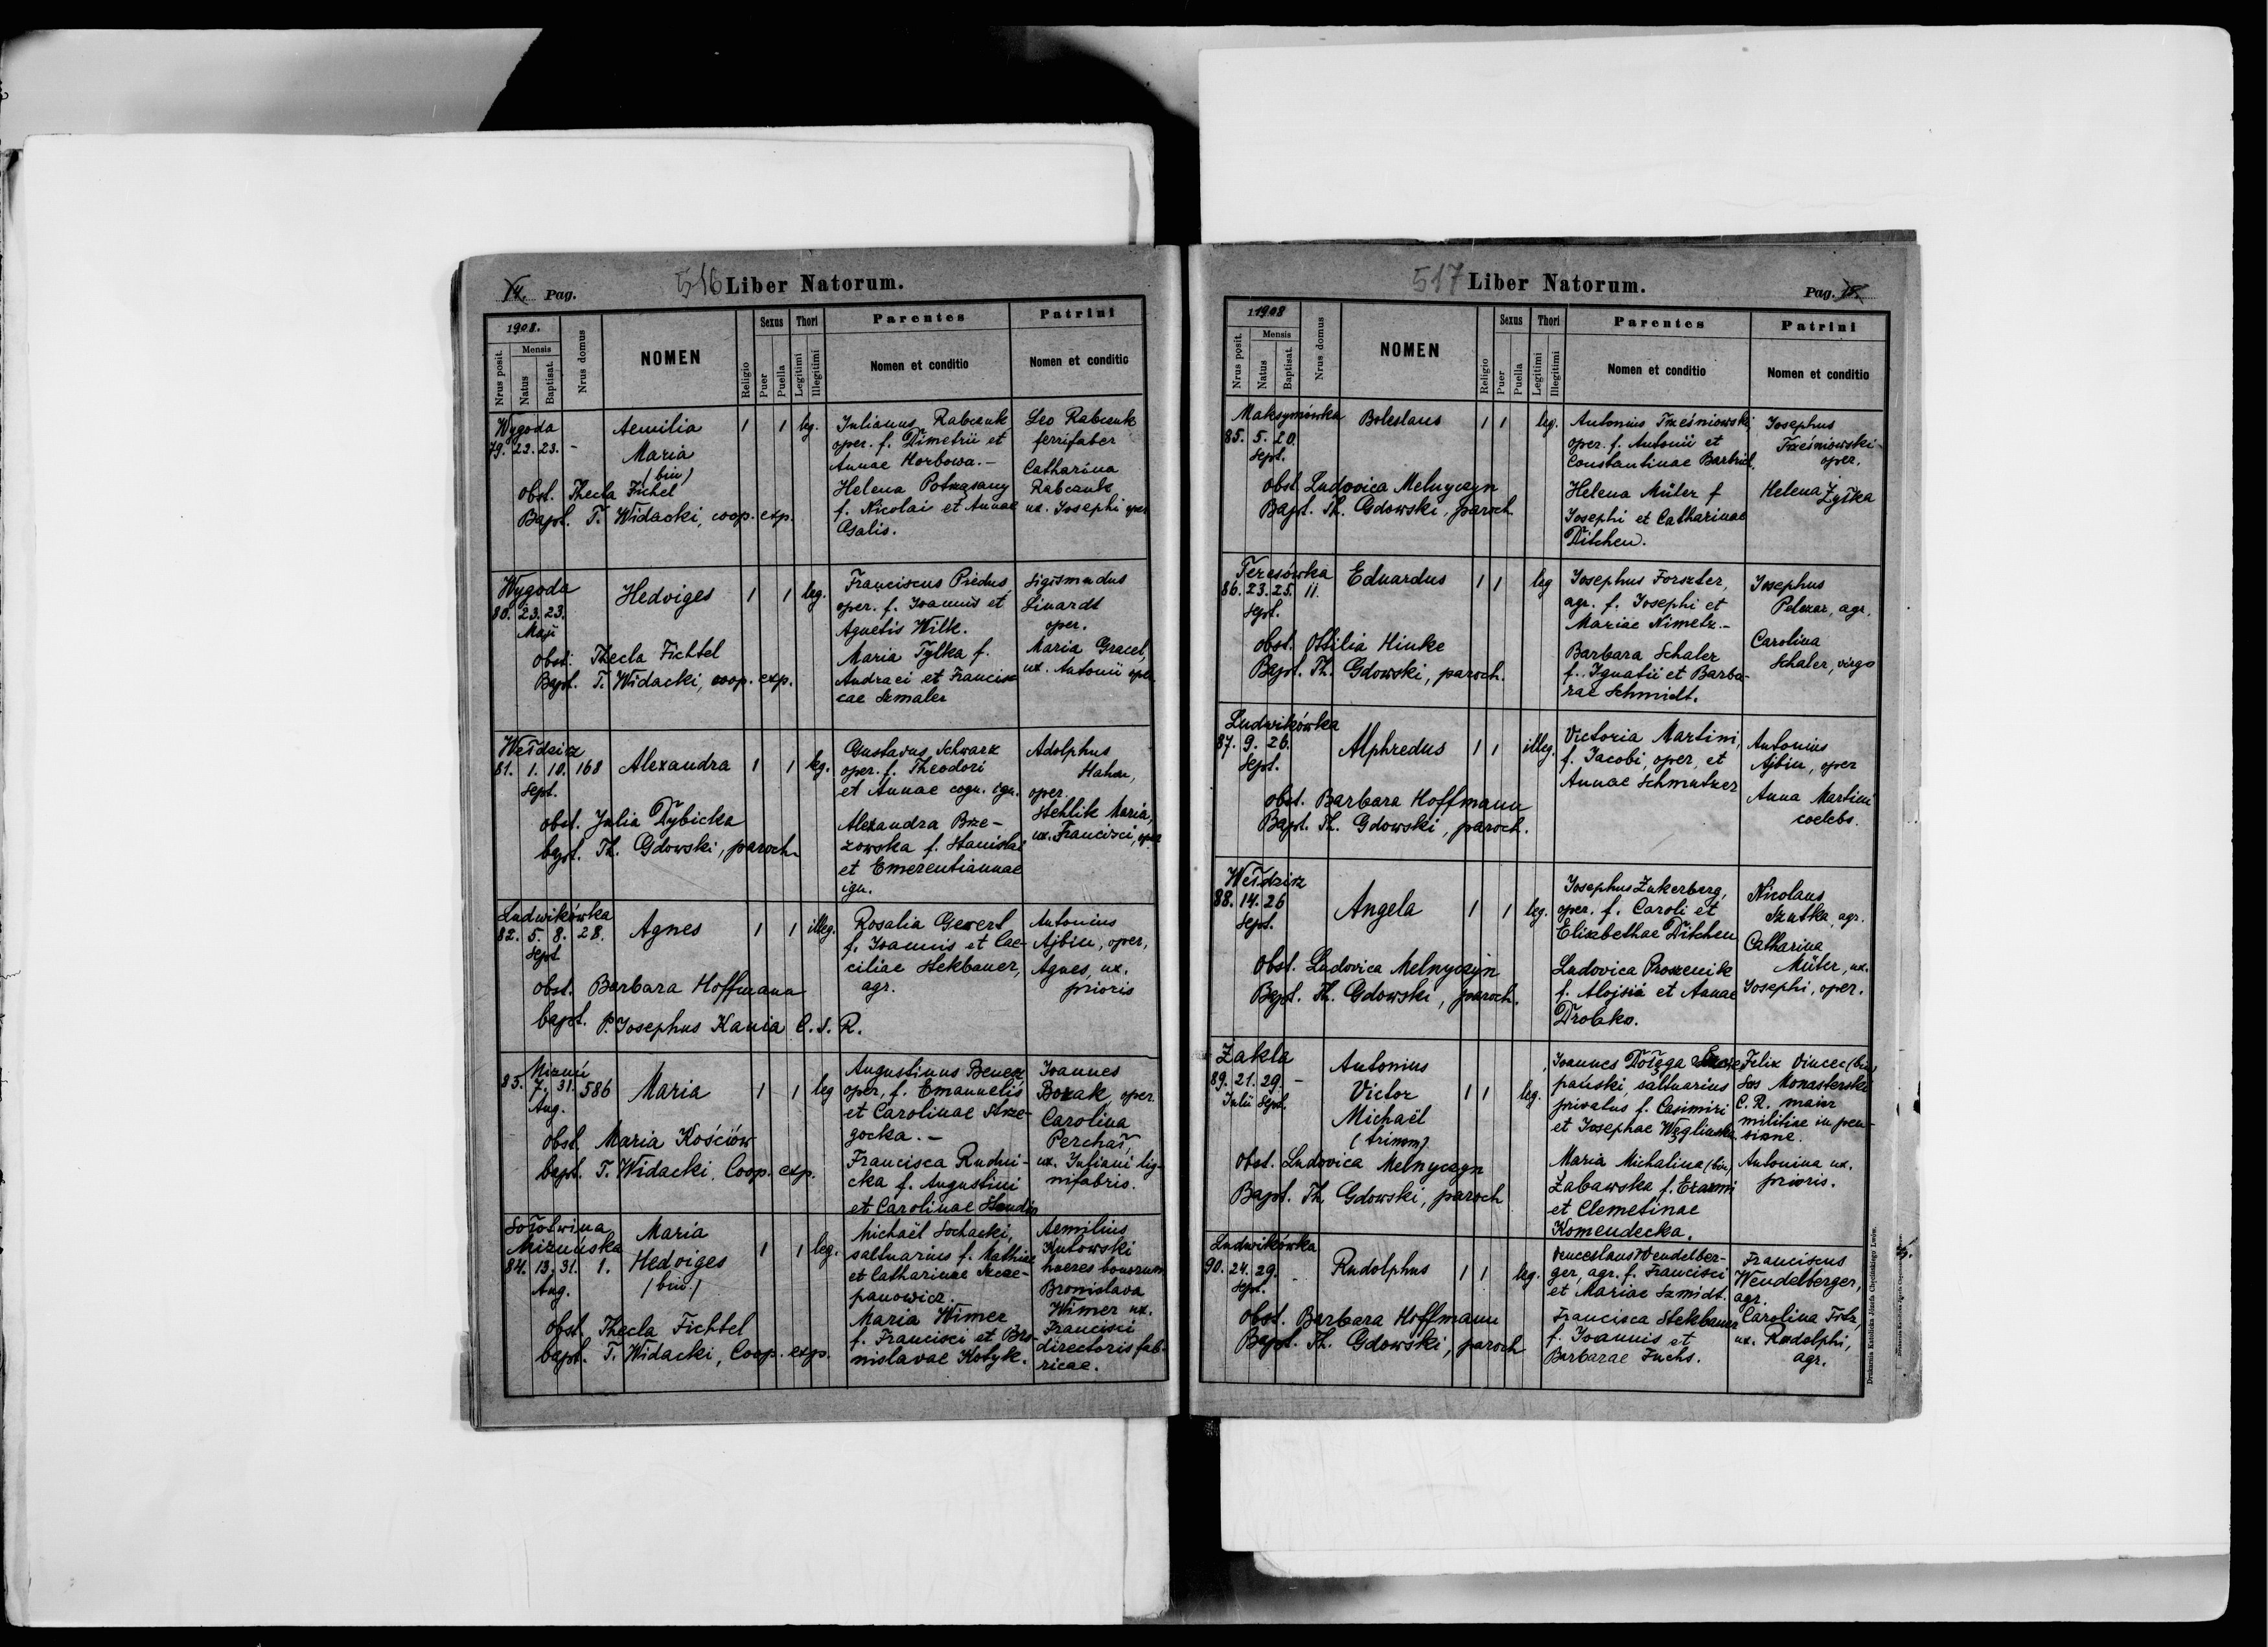 14. Pag.
516 Liber Natorum.
1908.
Nrus posit.
Mensis
Natus
Baptisat.
Nrus domus
NOMEN
Religio
Sexus
Puer
Puella
Thori
Legitimi
Illegitimi
Parentes
Nomen et conditio
Patrini
Nomen et conditio
Wygoda
79. 23. 23. -
Aemilia
Maria
(bin)
1 1 leg.
Julianus Rabczuk
oper. f. Dimetrii et
Annae Horbowa.-
Helena Potrzasany
f. Nicolai et Annae
Galis.
Leo Rabczuk
ferrifaber
Catharina
Rabczuk
ux. Josephi oper.
obst. Thecla Fichel
Bapt. T. Widacki, coop. exp.
Wygoda
80. 23. 23.
Maji
Hedviges
1 1 leg.
Franciscus Piedus,
oper. f. Joannis et
Agnetis Wilk.
Maria Tylka f.
Andraei et Francis
cae Szmaler
Sigismudus
Linardt
oper.
Maria Gracel,
ux. Antonii oper.
obst. Thecla Fichtel
Bapt. T. Widacki, coop. exp.
Wełdzirz
81. 1. 10. 168
Sept.
Alexandra
1 1 leg.
Gustavus Schwarz
oper. f. Theodori
et Annae cogn. ign.
Alexandra Brze-
zowska f. Stanislai
et Emerentiannae
ign.
Adolphus
Hahn,
oper.
Stehlik Maria,
ux. Francisci, oper
obst. Julia Dybicka
bapt. Th. Gdowski, paroch
Ludwikówka
82. 5. 8. 28.
Sept
Agnes
1 1 illeg.
Rosalia Gewerl
f. Joannis et Cae-
ciliae Stekbauer,
agr.
Antonius
Ajbin, oper,
Agnes, ux.
prioris
obst. Barbara Hoffmann
bapt. P. Josephus Kania C. S. R.
Mizuń
83. 7. 31. 586
Aug.
Maria
1 1 leg
Augustinus Benesz
oper, f. Emanuelis
et Carolinae Strze-
gocka.-
Francisca Rudni-
cka f. Augustini
et Carolinae
Joannes
Bozak, oper.
Carolina
Perchał,
ux. Juliani lig-
nifabris.
obst. Maria Kościów
bapt. T. Widacki, Coop. exp.
Sołotwina
Mizuńska
84. 13. 31. 1.
Aug.
Maria
Hedviges
(bin.)
1 1 leg.
Michaël Sochacki,
saltuarius f. Mathiae
et Catharinae Szcze-
panowicz.
Maria Wimer
f. Francisci et Bro-
nislavae Kotyk.
Aemilius
Kutowski
haeres bonorum
Bronislava
Wimer ux.
Francisci
directoris fab-
ricae.
obst. Thecla Fichtel
bapt. T. Widacki, Coop. exp.
517 Liber Natorum.
Pag. 15.
1908
Nrus posit.
Mensis
Natus
Baptisat.
Nrus domus
NOMEN
Religio
Sexus
Puer
Puella
Thori
Legitimi
Illegitimi
Parentes
Nomen et conditio
Patrini
Nomen et conditio
Maksymówka
85. 5. 20.
Sept.
Boleslaus
1 1 leg.
Antonius Trześniowski
oper. f. Antonii et
Constantinae
Helena Müler f
Josephi et Catharinae
Ditchen.
Josephus
Trześniowski
oper.
Helena Żyłka
obst. Ludovica Melnyczyn
Bapt. Th. Gdowski, paroch
Teresówka
86. 23. 25. 11.
Sept.
Eduardus
1 1 leg
Josephus Forszter,
agr. f. Josephi et
Mariae Nimetz.-
Barbara Schaler
f. Ignatii et Barba-
rae Schmidt.
Josephus
Pelczar, agr.
Carolina
Schaler, virgo
obst. Ottilia Hinke
Bapt. Th. Gdowski, paroch.
Ludwikówka
87. 9. 26.
Sept.
Alphredus
1 1 illeg.
Victoria Martini,
f. Jacobi, oper, et
Annae Schmutzer
Antonius
Ajbin, oper
Anna Martini
coelebs.
obst. Barbara Hoffmann
Bapt. Th. Gdowski, paroch.
Wełdzirz
88. 14. 26
Sept.
Angela
1 1 leg.
Josephus Zukerberg,
oper. f. Caroli et
Elisabethae Ditchen
Ludovica Proszenik
f. Alojsii et Annae
Drobko.
Nicolaus
Szutka, agr.
Catharina
Müler, ux.
Josephi, oper.
Obst. Ludovica Melnyczyn
Bapt. Th. Gdowski, paroch.
Zakla
89. 21. 29. -
Julii Sept.
Antonius
Victor
Michaël
(trinom)
1 1 leg.
Joannes Dołęga
pański, saltuarius
privatus f. Casimiri
et Josephae Węglinska
Maria Michalina (bin)
Zabawska f. Erazmi
et Clemetinae
Komendecka.
Felix Vincec (bin)
Sas Monasterski
C. R. maior
militiae in pen-
sione.
Antonina ux.
prioris.
Obst. Ludovica Melnyczyn
Bapt. Th. Gdowski, paroch
Ludwikówka
90. 24. 29. -
Sept.
Rudolphus
1 1 leg.
Venceslaus Wendelber-
ger, agr. f. Francisci
et Mariae Szmidt.
Francisca Stekbauer
f. Joannis et
Barbarae Fuchs.
Franciscus
Wendelberger,
agr.
Carolina Fitz,
ux. Rudolphi,
agr.
Obst. Barbara Hoffmann
Bapt. Th. Gdowski, paroch
Drukarnia Katolicka Józefa Chęcińskiego Lwów.